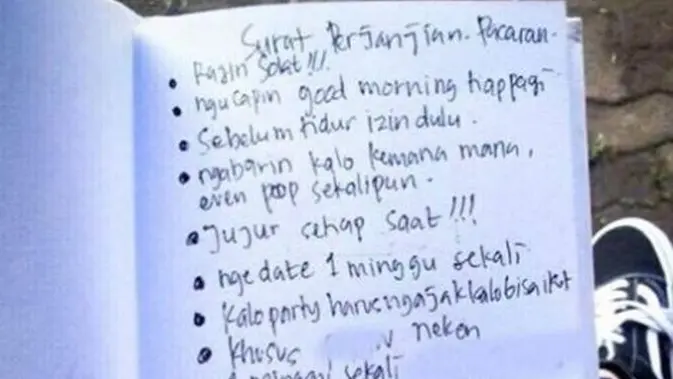 Surat Perjanjian. Pacaran.
• Rajin Solat!!!
• ngucapin good morning tiap pagi
• Sebelum tidur izin dulu.
• ngabarin kalo kemana mana,
even poop sekalipun.
• Jujur setiap saat!!!
• nge date 1 minggu sekali
• kalo party harus ngajak kalo bisa ikut
• khusus nekon
sekali